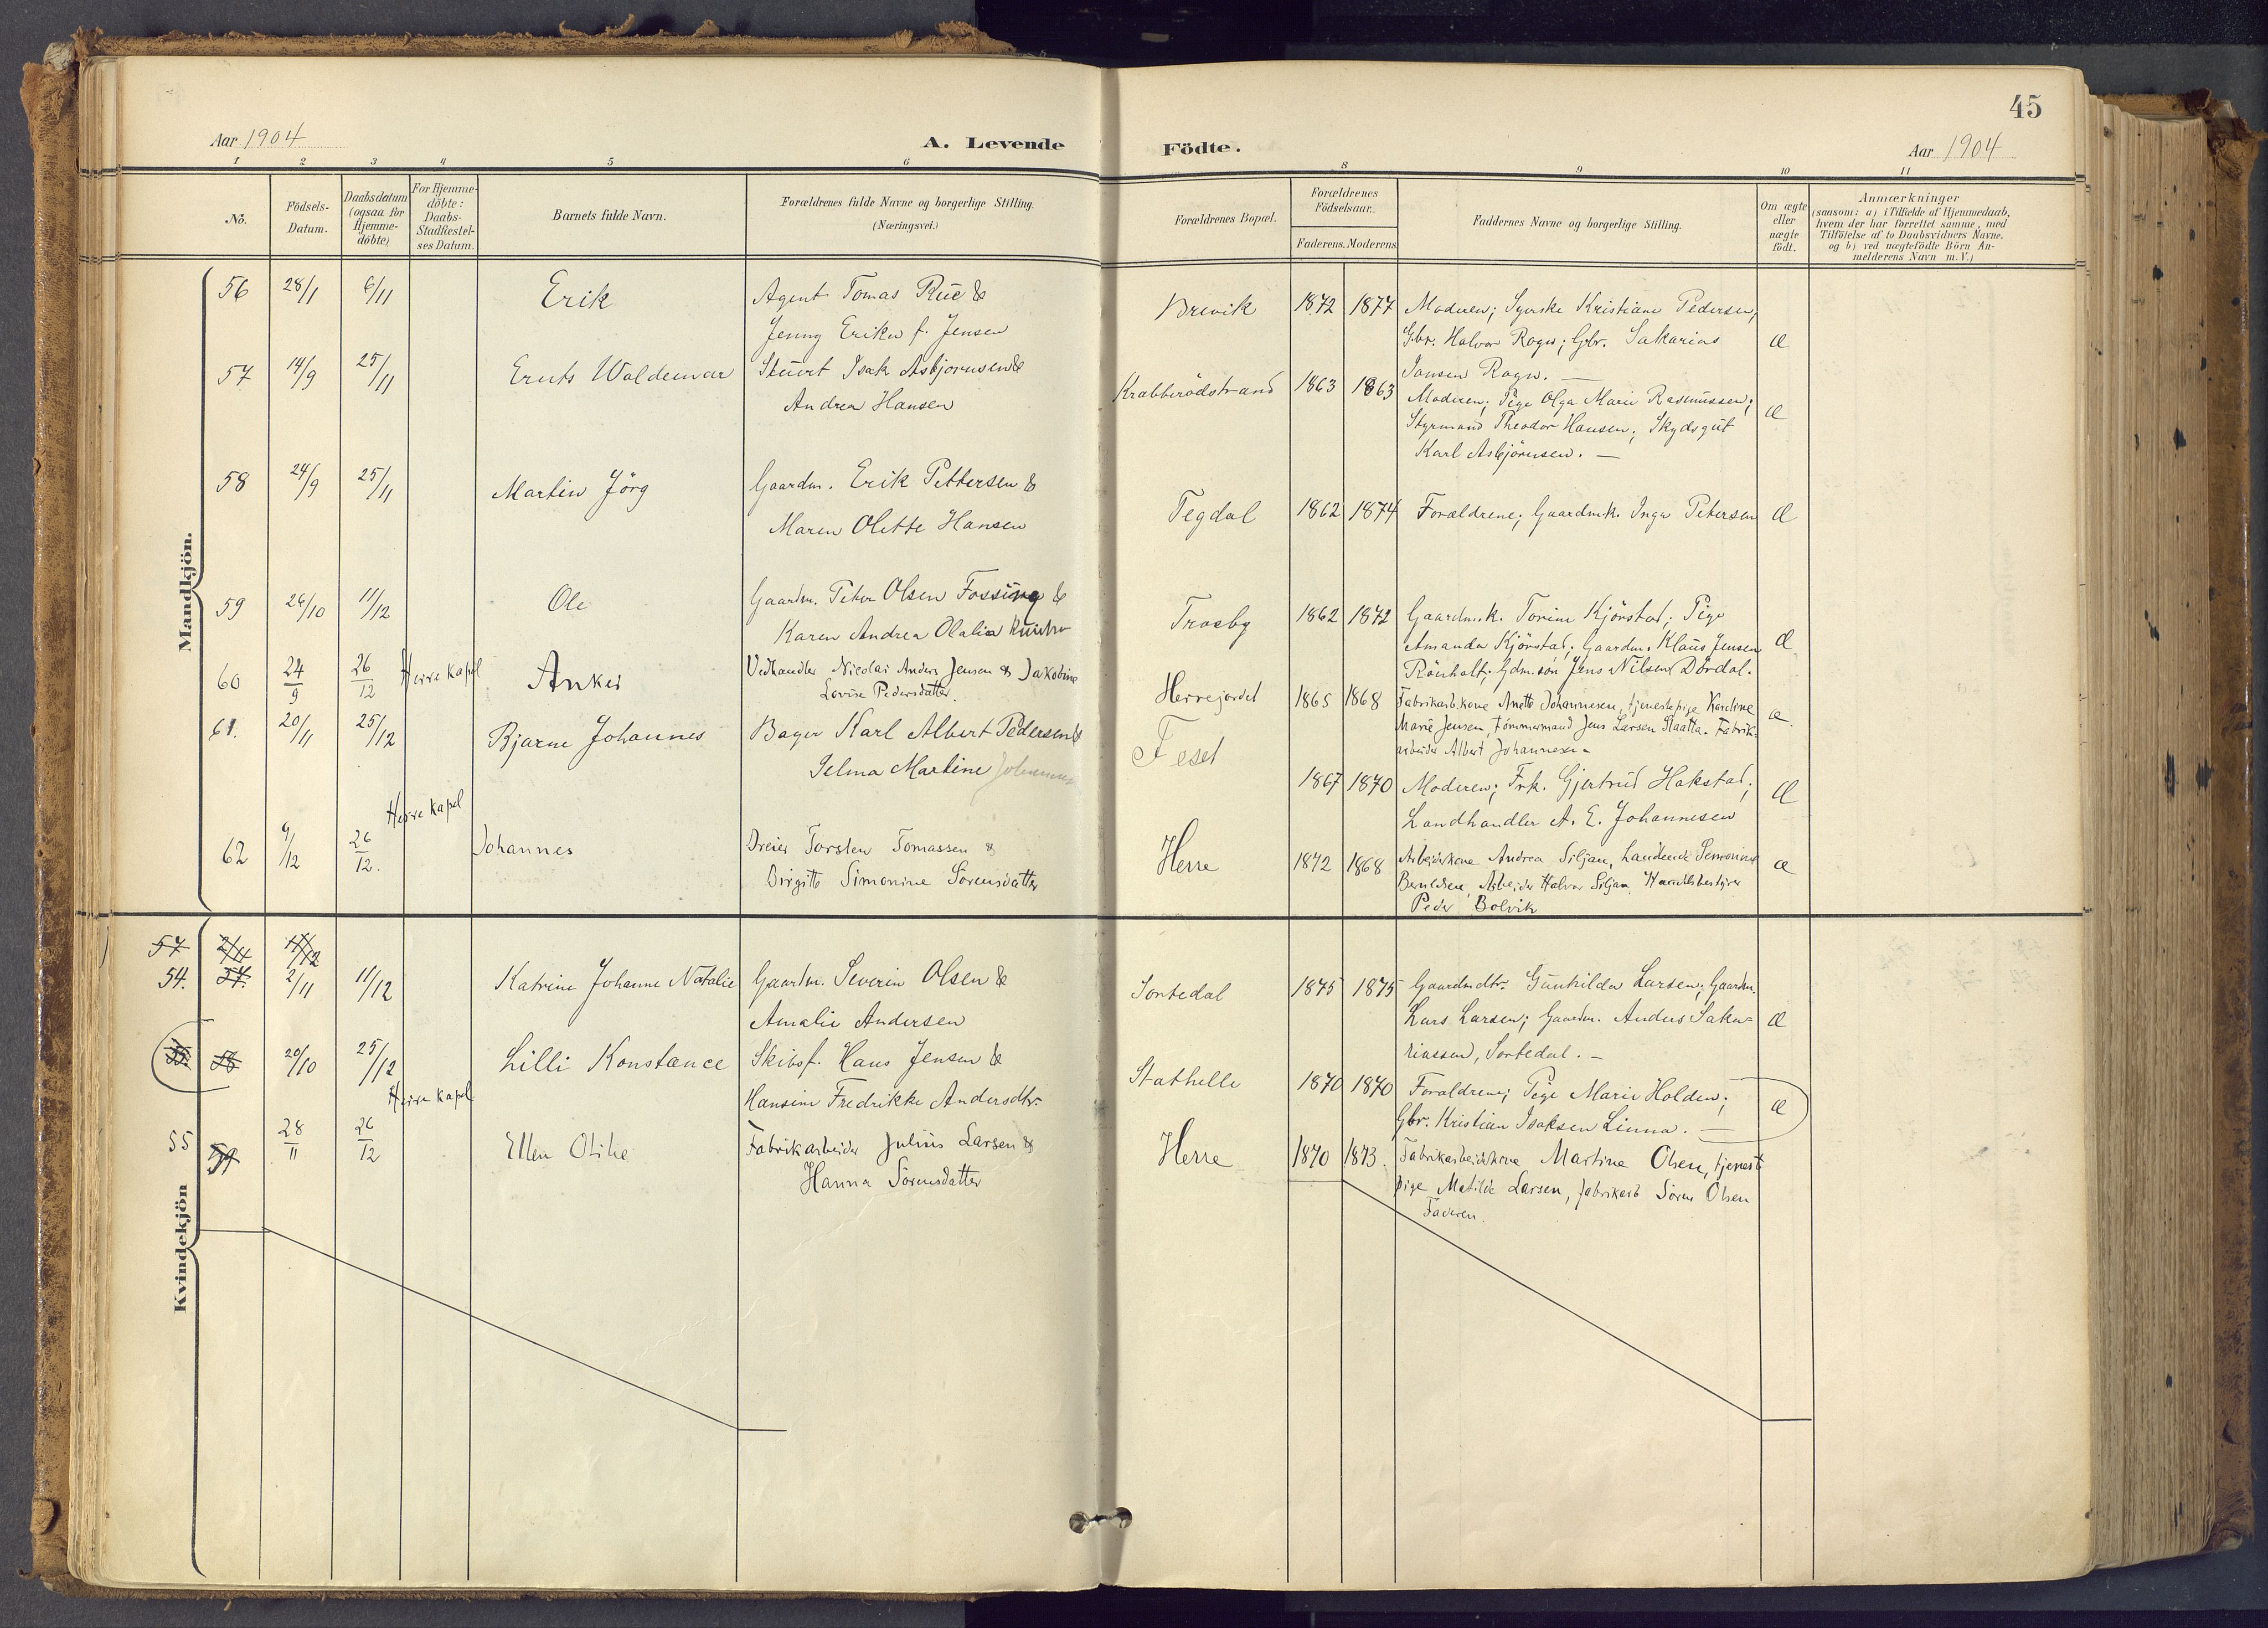 45
Aar 1904
A. Levende
Födte.
Aar 1904
1 2 3 4 5 6 8 9 10 11
No.
Födsels-
Datum.
Daabsdatum
(ogsaa for
Hjemme-
döbte)
For Hjemme-
döbte:
Daabs-
Stadfæstel-
ses Datum.
Barnets fulde Navn.
Forældrenes fulde Navne og borgerlige Stilling.
(Næringsvei.)
Forældrenes Bopæl.
Forældrenes
Födselsaar.
Faderens. Moderens
Faddernes Navne og borgerlige Stilling.
Om ægte
eller
uægte
födt.
Anmærkninger
(saasom: a) i Tilfælde af Hjemmedaab,
hvem der har forrettet samme, med
Tilföielse af to Daabsvidners Navne.
og b) ved uægtefödte Börn An-
melderens Navn m. V.)
Mandkjön.
56 28/1 6/11 Erik Agent Tomas Rue &
Jenny Erika f. Jensen
Brevik 1872 1877 Moderen; Syerske Kristiane Pedersen,
Gbr. Halvor Rogn; Gbr. Sakarias
Jansen Rogn. —
æ
57 14/9 25/11 Ernts Waldemar Stuert Isak Asbjörnsen &
Andrea Hansen
Krabberödstrand 1863 1863 Moderen; Pige Olga Marie Rasmussen;
Styrmand Theodor Hansen; Skydsgut
Karl Asbjörnsen. —
æ
58 24/9 25/11 Martin Jörg Gaardm. Erik Pettersen &
Maren Olette Hansen
Tegdal 1862 1874 Forældrene; Gaardmk. Inga Petersen æ
59 26/10 11/12 Ole Gaardm. Peter Olsen Fossing &
Karen Andrea Olalia
Trosby 1862 1872 Gaardmk. Torine Kjönstad; Pige
Amanda Kjönstad; Gaardm. Klaus Jensen
Rönholt; Gdm.sön Jens Nilsen Dördal.
æ
60 24/9 26/12 Herre kapel Anker Vedhandler Nicolai Anders Jensen & Jakobine
Lovise Pedersdatter.
Herrejordet 1865 1868 Fabrikarbkone Anette Johannesen, tjenestepige Karoline
Marie Jensen, tömmermand Jens Larsen Slaatta. Fabrik-
arbeider Albert Johannesen
æ
61. 20/11 25/12 Bjarne Johannes Bager Karl Albert Pedersen &
Selma Martine
Feset 1867 1870 Moderen; Frk. Gjertrud Hakstad;
Landhandler A. E. Johannesen
æ
62 9/12 26/12. Herre kapel Johannes Dreier Torsten Tomassen &
Birgitte Simonine Sörensdatter
Herre 1872 1868 Arbeiderkone Andrea Siljan,
Arbeider Halvor Siljan, Handelsbestyrer
Peder Bolvik
æ
Kvindekjön
57 2/11 11/12
54. 57. 2/11 11/12 Katrine Johanne Natalie Gaardm. Severin Olsen &
Amalie Andersen
Sortedal 1875 1875 Gaardmdtr. Gunhilda Larsen; Gaardm.
Lars Larsen; Gaardm. Anders Saka-
riassen, Sortedal. —
æ
58 20/10 25/12 Lilli Konstance Skibsf. Hans Jensen &
Hansine Fredrikke Andersdtr.
Stathelle 1870 1870 Forældrene; Pige Marie Holden;
Gbr. Kristian Isaksen Linna. —
æ
55 59 28/11 26/12 Herre kapel Ellen Otilie Fabrikarbeider Julius Larsen &
Hanna Sörensdatter
Herre 1870 1873. Fabrikarbeiderkone Martine Olsen, tjeneste
pige Matilde Larsen, fabrikarb Sören Olsen
Faderen.